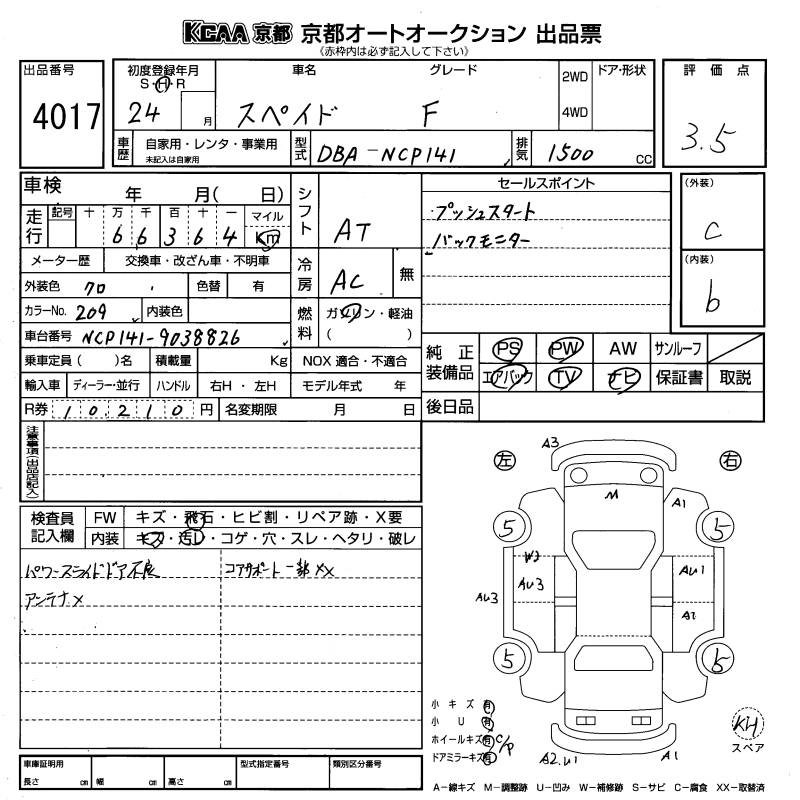 KCAA 京都 京都オートオークション 出品票
《赤枠内は必ず記入して下さい》
出品番号
4017
初度登録年月 S・H・R
24 月
車名 グレード
スペイド F
2WD
4WD
ドア・形状
評価点
3.5
車歴 自家用・レンタ・事業用
未記入は自家用
型式 DBA-NCP141
排気 1500 CC
車検 年 月( 日)
走行 記号 十 万 千 百 十 一 マイル
6 6 3 6 4 Km
シフト AT
セールスポイント
・プッシュスタート
バックモニター
(外装)
C
(内装)
b
メーター歴 交換車・改ざん車・不明車
外装色 クロ 色替 有
冷房 AC 無
カラーNo. 209 内装色
燃料 ガソリン・軽油
( )
車台番号 NCP141-9038826
乗車定員( )名 積載量 Kg NOX 適合・不適合
輸入車 ディーラー・並行 ハンドル 右H・左H モデル年式 年
R券 10,210 円 名変期限 月 日
純正装備品 PS PW AW サンルーフ
エアバック TV ナビ 保証書 取説
後日品
注意事項(出品店記入)
検査員記入欄 FW キズ・飛石・ヒビ割・リペア跡・X要
内装 キズ・汚レ・コゲ・穴・スレ・ヘタリ・破レ
パワースライドドア不良 コアサポート一部XX
アンテナX
左 右
A3
M A1
5 5
W3
AU3 AU3 AU1
A2
5 5
小キズ 有
小U 有
ホイールキズ 有 C/P
ドアミラーキズ 有
A2.U1 A1
KH
スペア
車庫証明用
長さ cm 幅 cm 高さ cm
型式指定番号 類別区分番号
A-線キズ M-調整跡 U-凹み W-補修跡 S-サビ C-腐食 XX-取替済